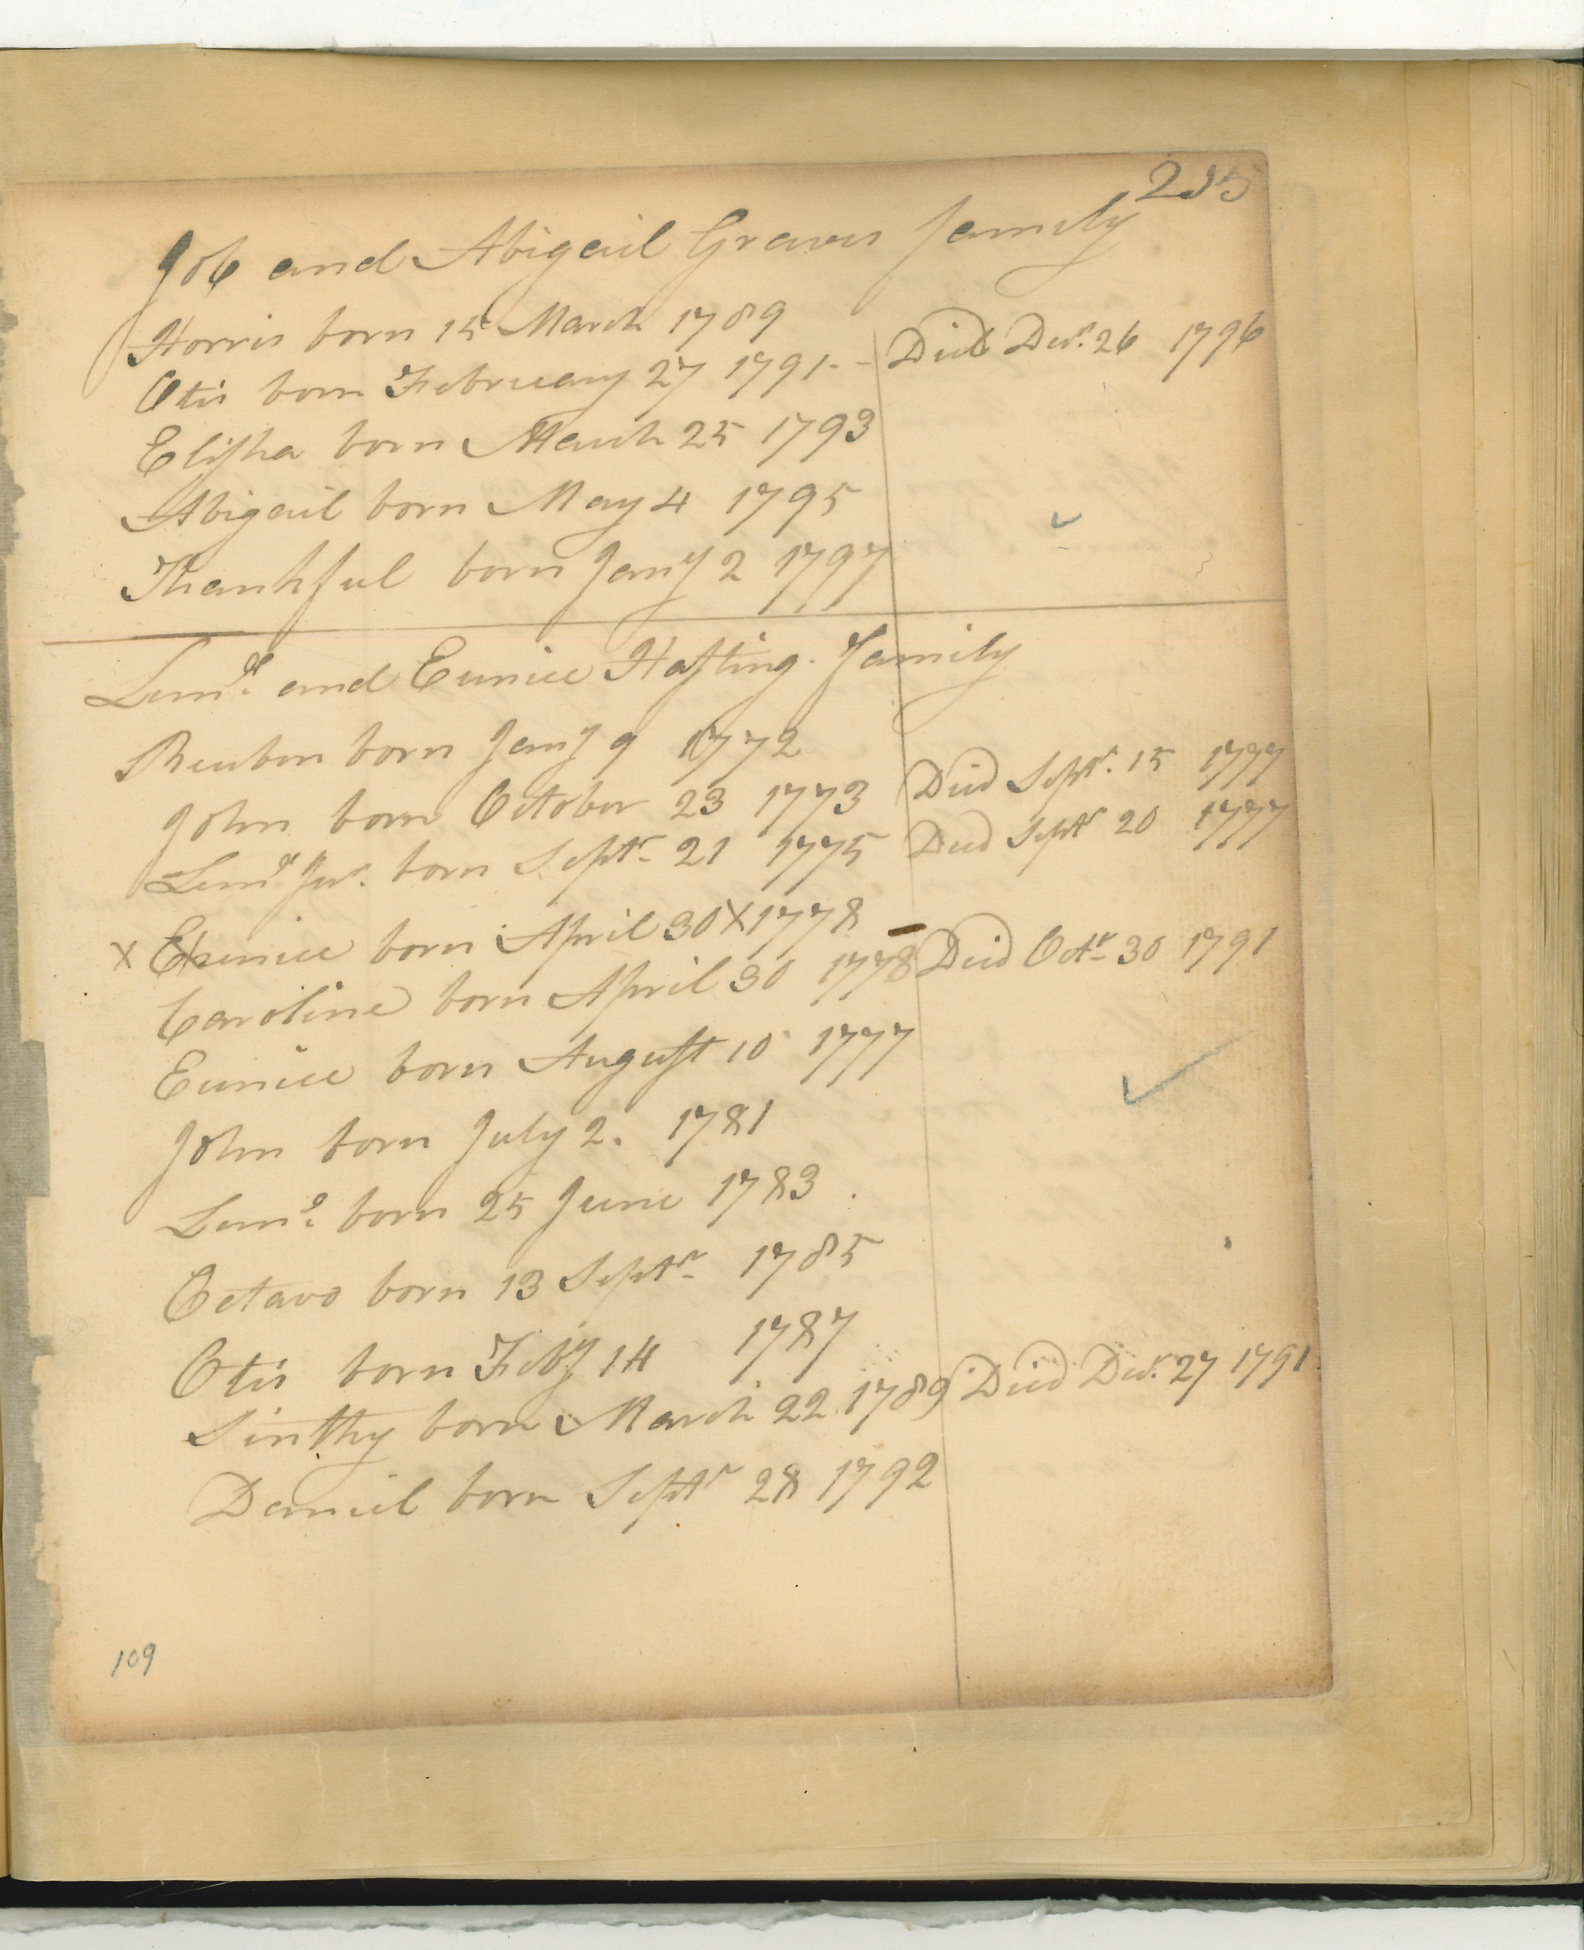 235
Job and Abigail Graves family
Horris born 15 March 1789
Otis born February 27 1791 - - Died Decr. 26 1796
Elisha born March 25 1793
Abigail born May 4 1795
Thankful born Jany 2 1797
Leml. and Eunice Hasting. Family
Reuben born Jany 9 1772
John born October 23 1773 Died Sept. 15 1777
Leml Jur. born Septr. 21 1775 Died Sept 20 1777
X Eunice born April 30 X 1778
Caroline born April 30 1778 Died Octr. 30 1791
Eunice born August 10 1777
John born July 2. 1781
Leml. born 25 June 1783.
Octavo born 13 Septr. 1785
Otis born Feby 14 1787
Sinthy born March 22 1789 Died Decr. 27 1791
Daniel born Septr 28 1792
109